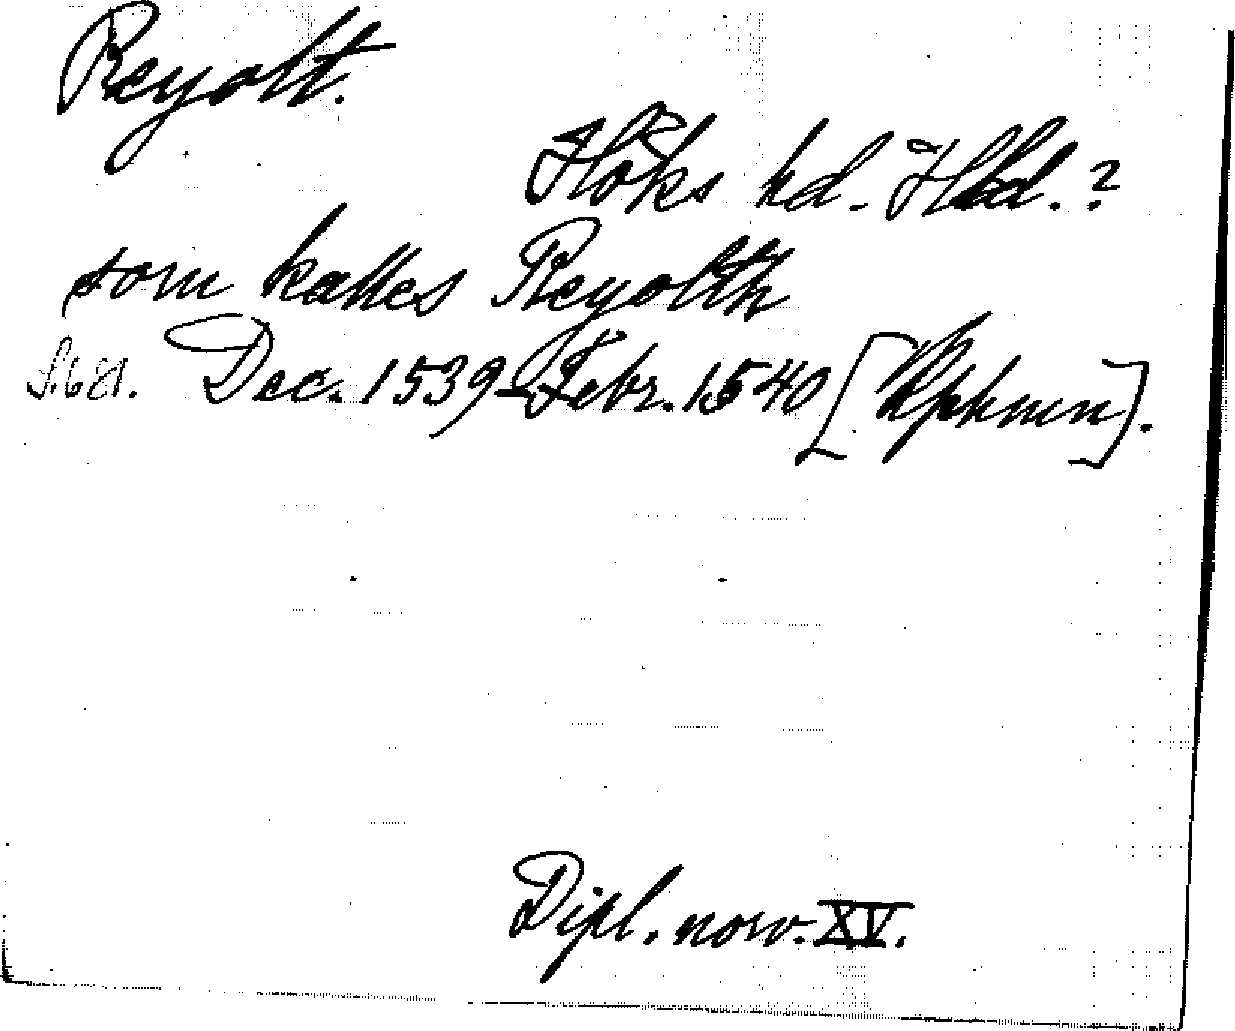 Reyolt.
Höks hd. Hld.?
som kalles Reyolth
S.681. Dec. 1539-Febr. 1540 [Kphmn].
Dipl. norv. XV.